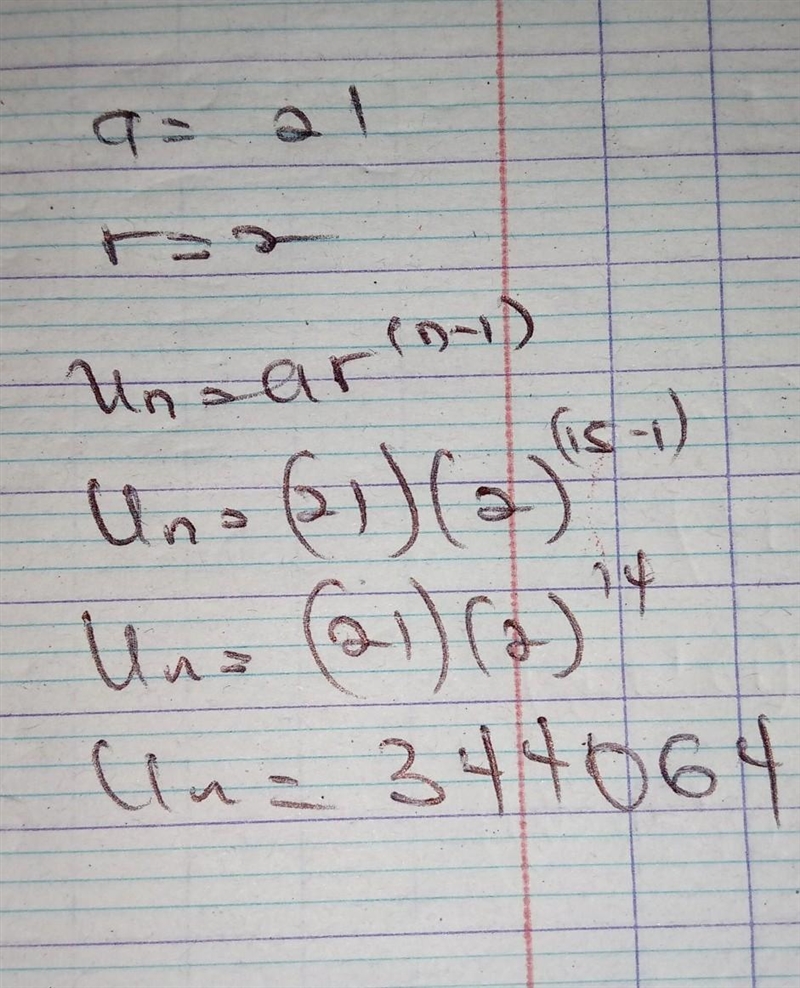 a = 21
r = 2
Un = ar^(n-1)
Un = (21)(2)^(15-1)
Un = (21)(2)^14
Un = 344064